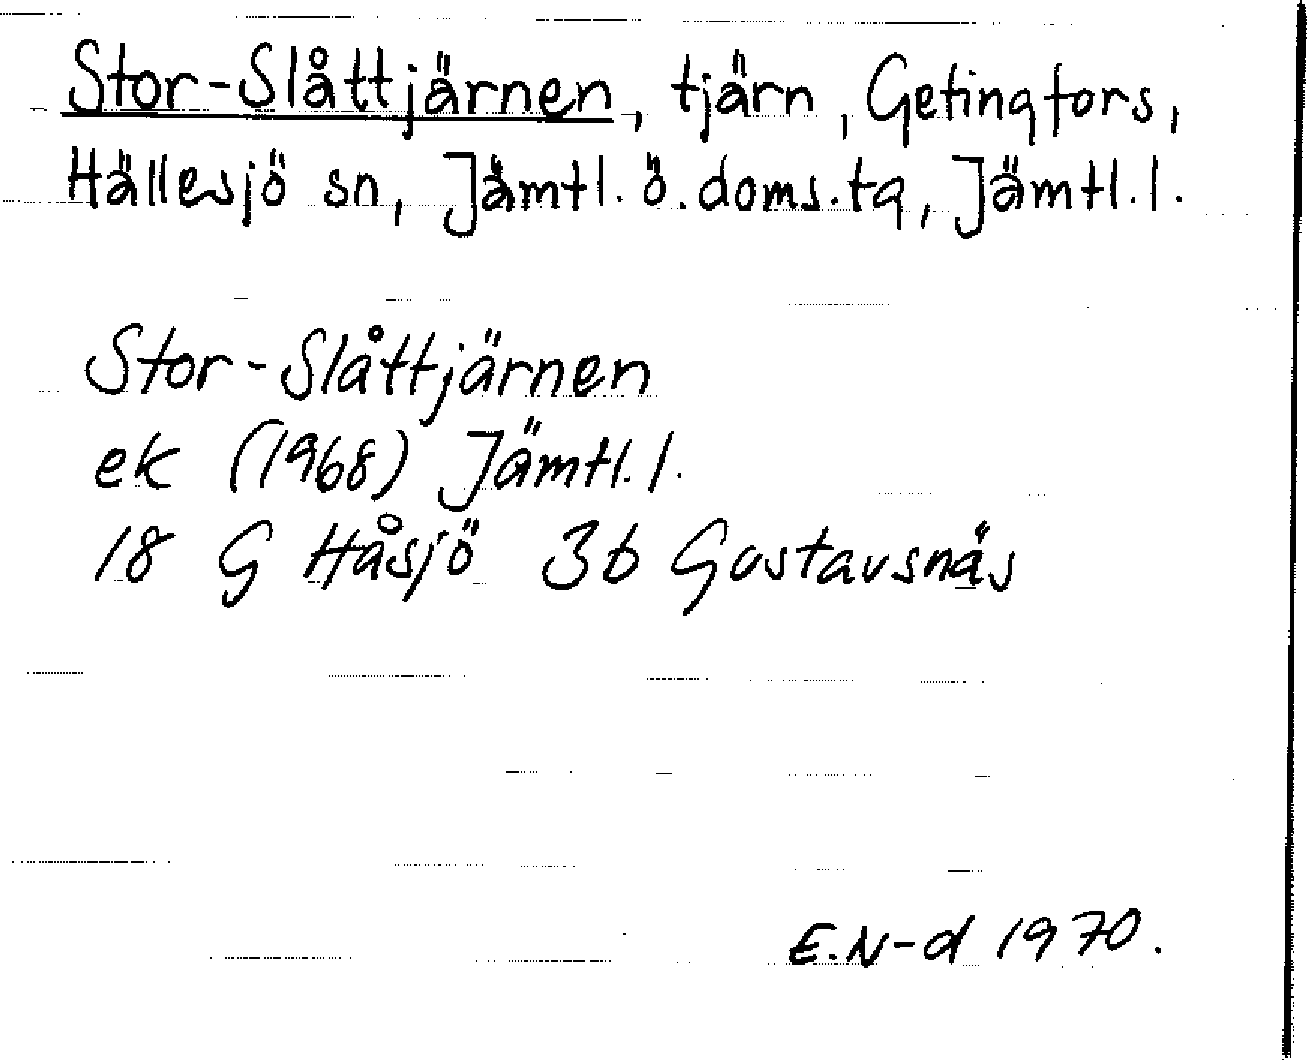 Stor-Slåttjärnen, tjärn, Getingfors,
Hällesjö sn, Jämtl. ö. doms.tg, Jämtl.l.
Stor-Slåttjärnen
ek (1968) Jämtl.l.
18 G Håsjö 3b Gustavsnäs
E.N-d 1970.